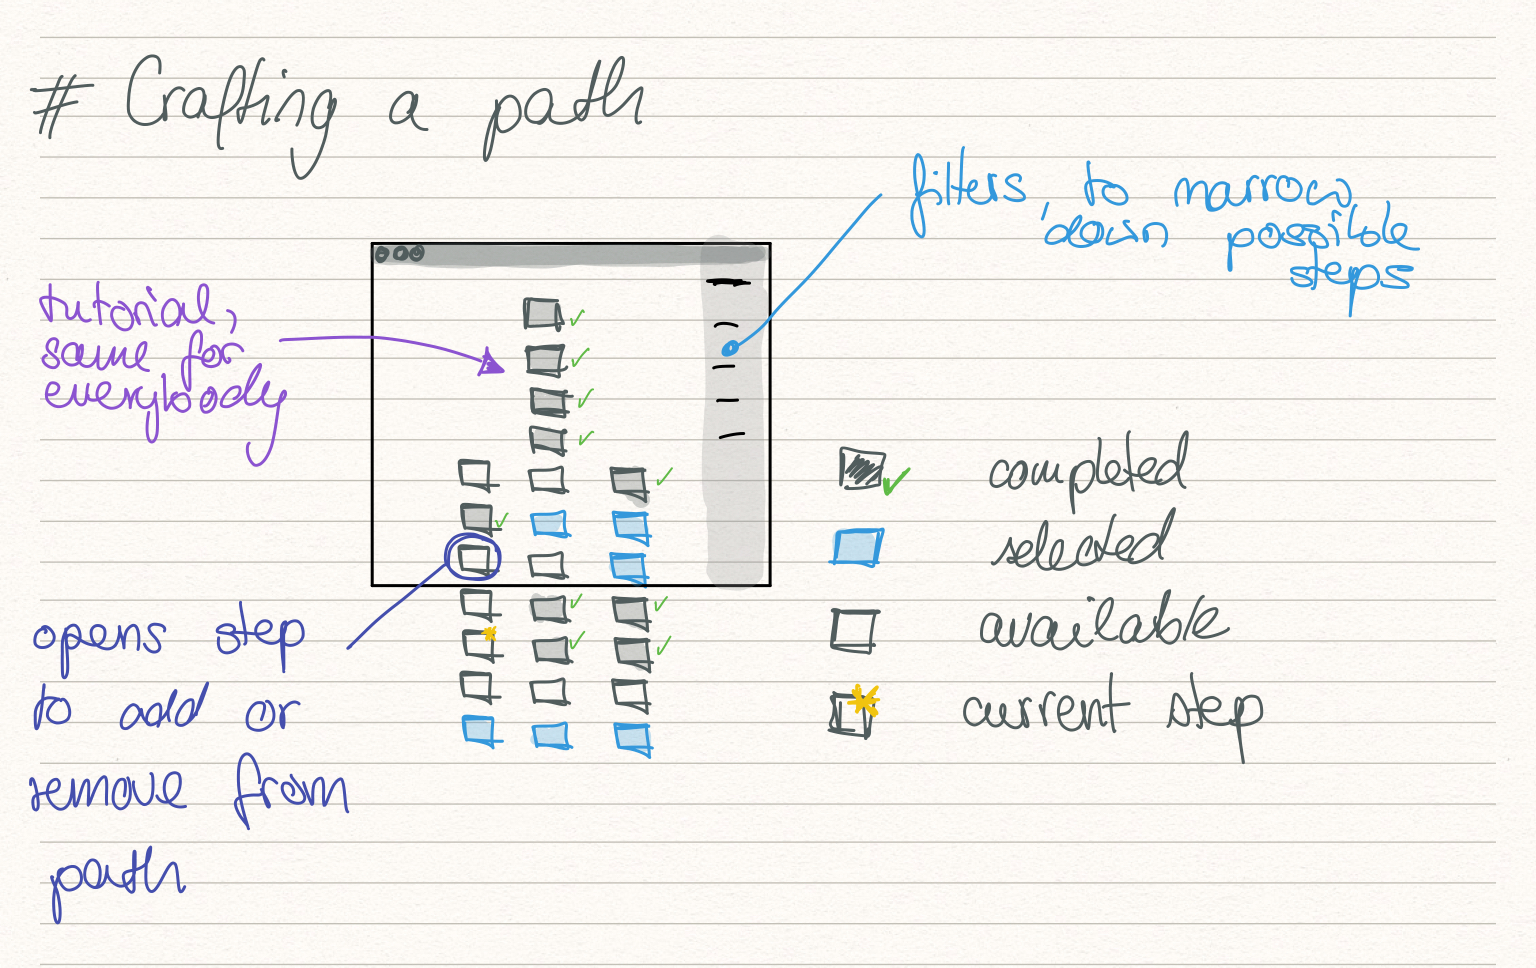 # Crafting a path
filters, to narrow
down possible
steps
tutorial,
same for
everybody
completed
selected
available
current step
opens step
to add or
remove from
path